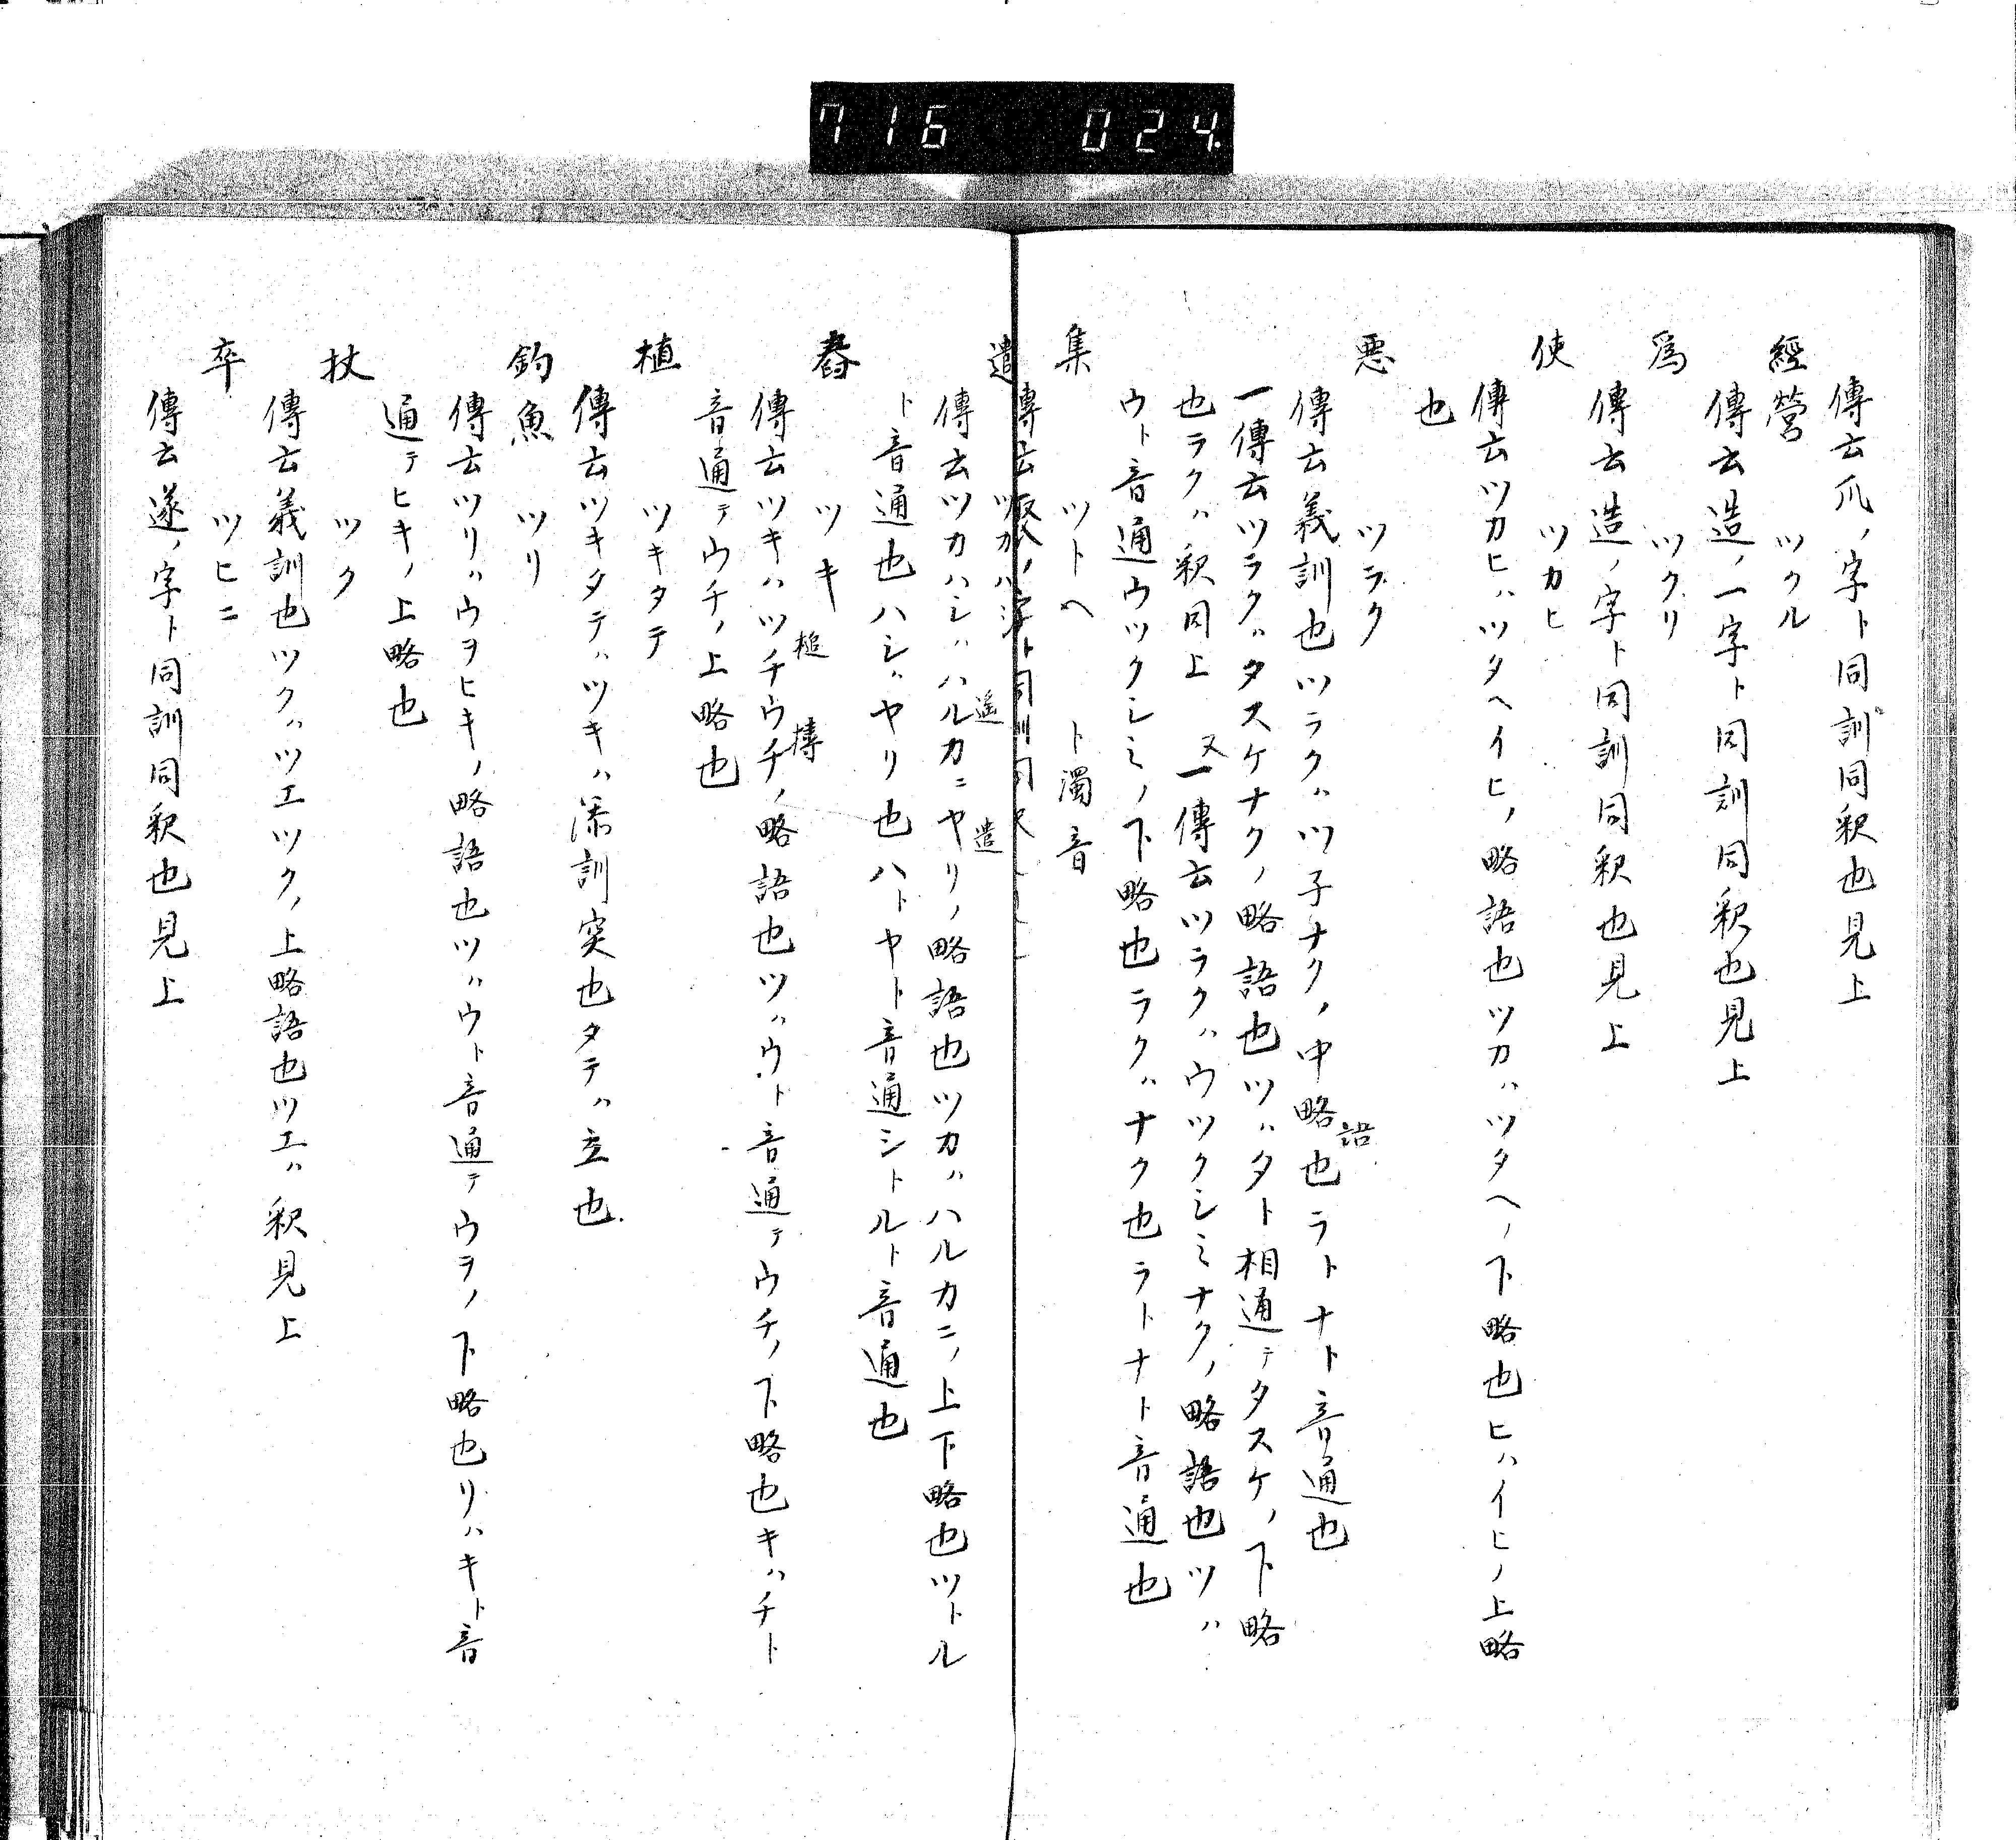 716 024
傳云爪ノ字ト同訓同釈也見上
經營 ツクル
傳云造ノ一字ト同訓同釈也見上
爲 ツクリ
傳云造ノ字ト同訓同釈也見上
使 ツカヒ
傳云ツカヒハツタヘイヒノ略語也ツカハツタヘノ下略也ヒハイヒノ上略
也
悪 ツラク
傳云義訓也ツラクハツ子ナクノ中略語也ラトナト音通也
一傳云ツラクハタスケナクノ略語也ツハタト相通テタスケノ下略
也ラクハ釈同上 又一傳云ツラクハウツクシミナクノ略語也ツハ
ウト音通ウツクシミノ下略也ラクハナク也ラトナト音通也
集 ツトヘ ト濁音
傳云聚ノ字ト同訓同釈
遣 ツカハシ
傳云ツカハシハハルカニヤリノ略語也ツカハハルカニノ上下略也ツトル
遥 遣
ト音通也ハシハヤリ也ハトヤト音通シトルト音通也
舂 ツキ
槌 擣
傳云ツキハツチウチノ略語也ツハウト音通テウチノ下略也キハチト
音通テウチノ上略也
植 ツキタテ
傳云ツキタテハツキハ添訓突也タテハ立也
釣魚 ツリ
傳云ツリハウヲヒキノ略語也ツハウト音通テウヲノ下略也リハキト音
通テヒキノ上略也
杖 ツク
傳云義訓也ツクハツエツクノ上略語也ツエハ釈見上
卒 ツヒニ
傳云遂ノ字ト同訓同釈也見上